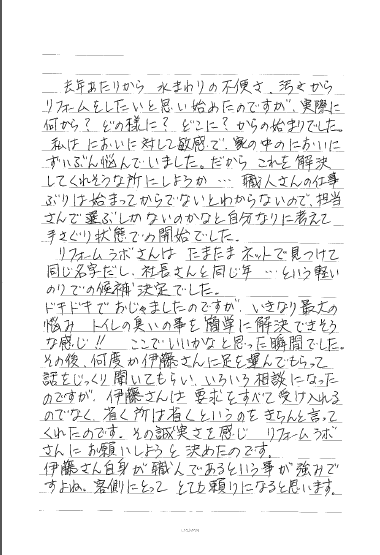 去年あたりから 水まわりの不便さ、汚さから
リフォームをしたいと思い始めたのですが、実際に
何から? どの様に? どこに? からの始まりでした。
私は においに対して敏感で、家の中のにおいに
ずいぶん悩んでいました。だから これを解決
してくれそうな所にしようか … 職人さんの仕事
ぶりは始まってからでないとわからないので、担当
さんで選ぶしかないのかなと自分なりに考えて
手さぐり状態での開始でした。
リフォームラボさんは たまたまネットで見つけて
同じ名字だし、社長さんと同じ年 … という軽い
のりでの候補決定でした。
ドキドキでおじゃましたのですが、いきなり最大の
悩み トイレの臭いの事を簡単に解決できそう
な感じ!! ここでいいかなと思った瞬間でした。
その後、何度か伊藤さんに足を運んでもらって
話をじっくり聞いてもらい、いろいろ相談になった
のですが、伊藤さんは 要求をすべて受け入れる
のでなく、省く所は省くというのを きちんと言って
くれたのです。その誠実さを感じ リフォームラボ
さんに お願いしようと 決めたのです。
伊藤さん自身が職人であるという事が強みで
すよね。客側にとって とても頼りになると思います。